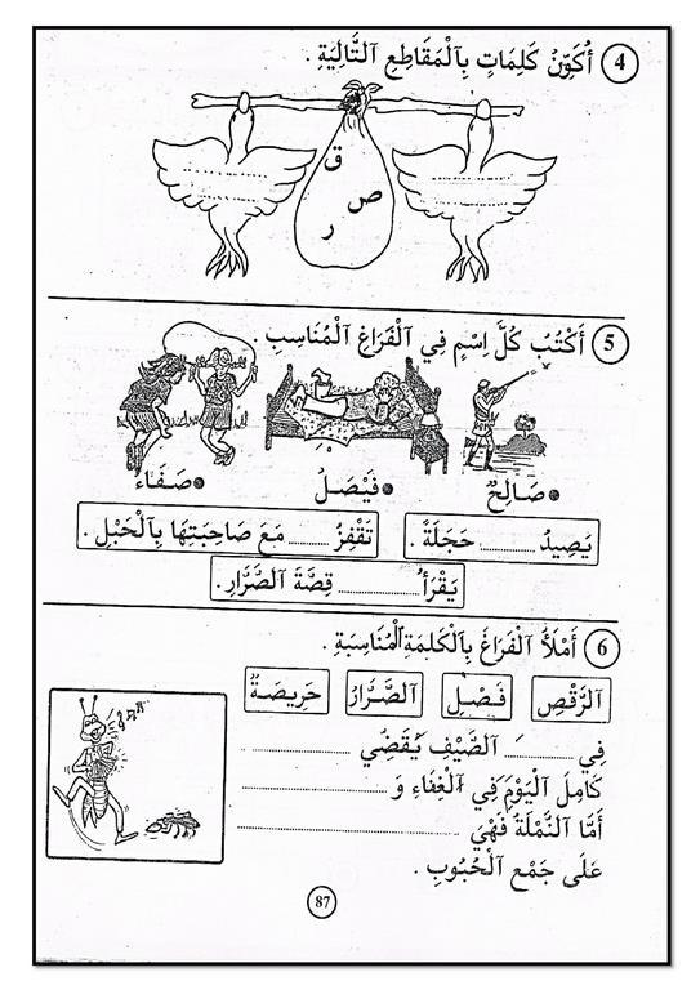 4 أُكَوِّنُ كَلِمَاتٍ بِٱلْمَقَاطِعِ ٱلتَّالِيَةِ .
ق
ص
ر
5 أَكْتُبُ كُلَّ اِسْمٍ فِي ٱلْفَرَاغِ ٱلْمُنَاسِبِ .
•صَالِحٌ •فَيْصَلُ •صَفَاءُ
يَصِيدُ ............ حَجَلَةً . تَقْفِزُ ............ مَعَ صَاحِبَتِهَا بِٱلْحَبْلِ .
يَقْرَأُ ............ قِصَّةَ ٱلصَّرَّارِ .
6 أَمْلَأُ ٱلْفَرَاغَ بِٱلْكَلِمَةِ ٱلْمُنَاسِبَةِ .
ٱلرَّقْصِ فَصْلِ ٱلصَّرَّارُ حَرِيصَةٌ
فِي ............ ٱلصَّيْفِ يُقَضِّي ............
كَامِلَ ٱلْيَوْمِ فِي ٱلْغِنَاءِ وَ ............
أَمَّا ٱلنَّمْلَةُ فَهْيَ ............
عَلَى جَمْعِ ٱلْحُبُوبِ .
87